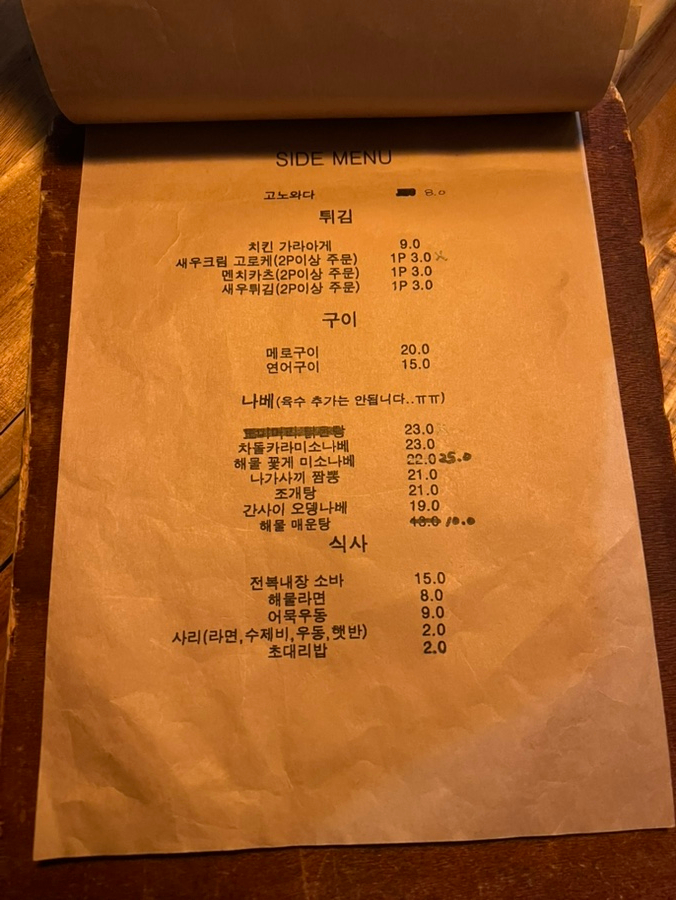 SIDE MENU
고노와다 8.0
튀김
치킨 가라아게 9.0
새우크림 고로케(2P이상 주문) 1P 3.0 X
멘치카츠(2P이상 주문) 1P 3.0
새우튀김(2P이상 주문) 1P 3.0
구이
메로구이 20.0
연어구이 15.0
나베(육수 추가는 안됩니다..ㅠㅠ)
23.0
차돌카라미소나베 23.0
해물 꽃게 미소나베 22.0 25.0
나가사끼 짬뽕 21.0
조개탕 21.0
간사이 오뎅나베 19.0
해물 매운탕 13.0 10.0
식사
전복내장 소바 15.0
해물라면 8.0
어묵우동 9.0
사리(라면,수제비,우동,햇반) 2.0
초대리밥 2.0